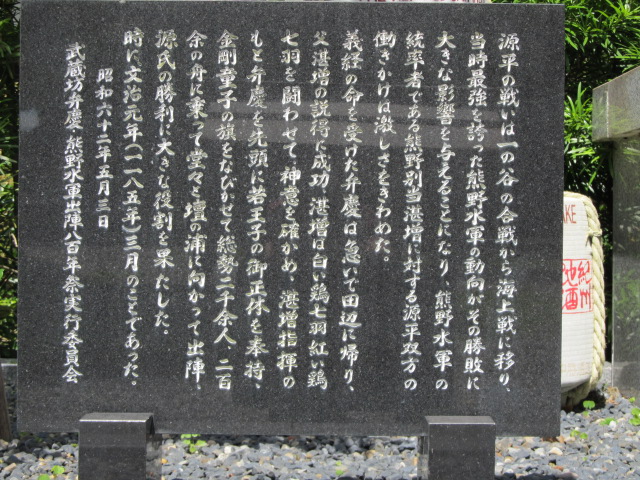 源平の戦いは一の谷の合戦から海上戦に移り、
当時最強を誇った熊野水軍の動向がその勝敗に
大きな影響を与えることになり、熊野水軍の
統率者である熊野別当湛増に対する源平双方の
働きかけは激しさをきわめた。
義経の命を受けた弁慶は急いで田辺に帰り、
父湛増の説得に成功、湛増は白い鶏七羽紅い鶏
七羽を闘わせて、神意を確かめ、湛増指揮の
もと弁慶を先頭に若王子の御正体を奉持、
金剛童子の旗をなびかせて総勢二千余人、二百
余の舟に乗って堂々と壇の浦に向かって出陣、
源氏の勝利に大きな役割を果たした。
時に文治元年(一一八五年)三月のことであった。
昭和六十二年五月三日
武蔵坊弁慶・熊野水軍出陣八百年祭実行委員会
AKE
紀州
地酒